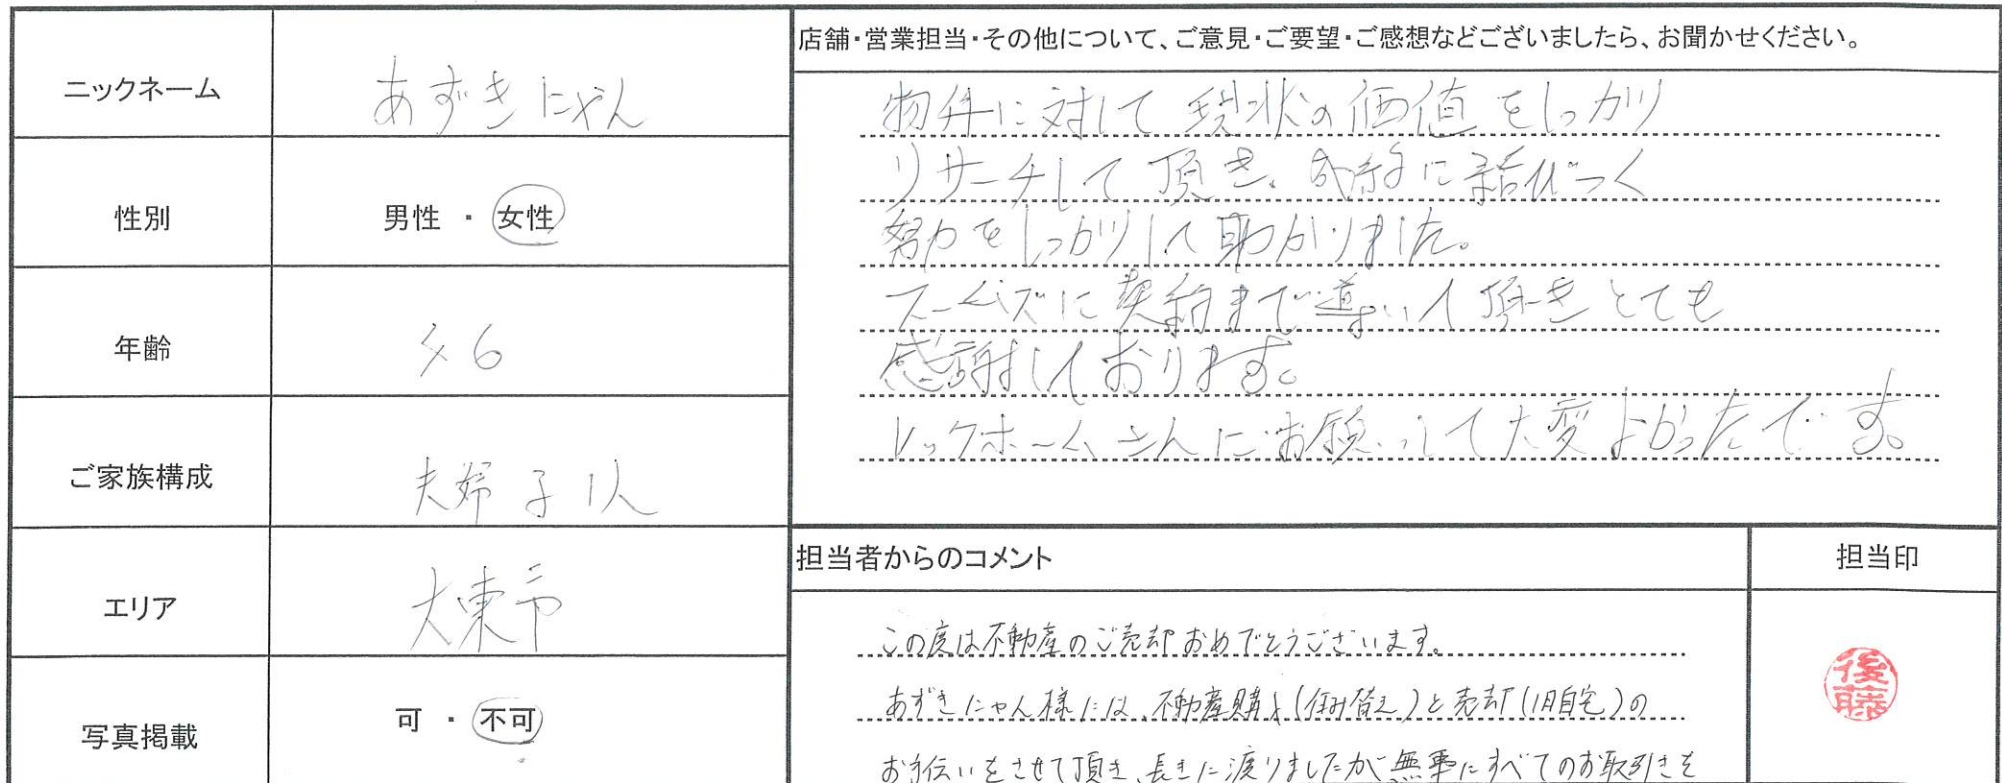 ニックネーム
あずきにゃん
性別
男性 ・ 女性
年齢
ご家族構成
夫婦 子 1人
エリア
大東市
写真掲載
可 ・ 不可
店舗・営業担当・その他について、ご意見・ご要望・ご感想などございましたら、お聞かせください。
物件に対して 現状の価値をしっかり
リサーチして頂き、成約に結びつく
努力をしっかりして助かりました。
スームズに契約まで導いて頂きとても
感謝しております。
レックホームさんにお願いして大変よかったです。
担当者からのコメント
この度は不動産のご売却おめでとうございます。
あずきにゃん様には、不動産購入(住み替え)と売却(旧自宅)の
お手伝いをさせて頂き、長きに渡りましたが無事にすべてのお取引きを
担当印
後藤